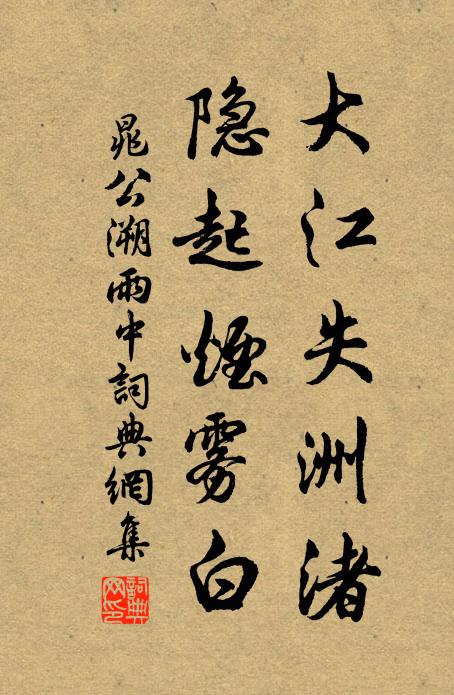 大江失洲渚
隐起煙雾白
晁公溯雨中詞典網集
詞典網印